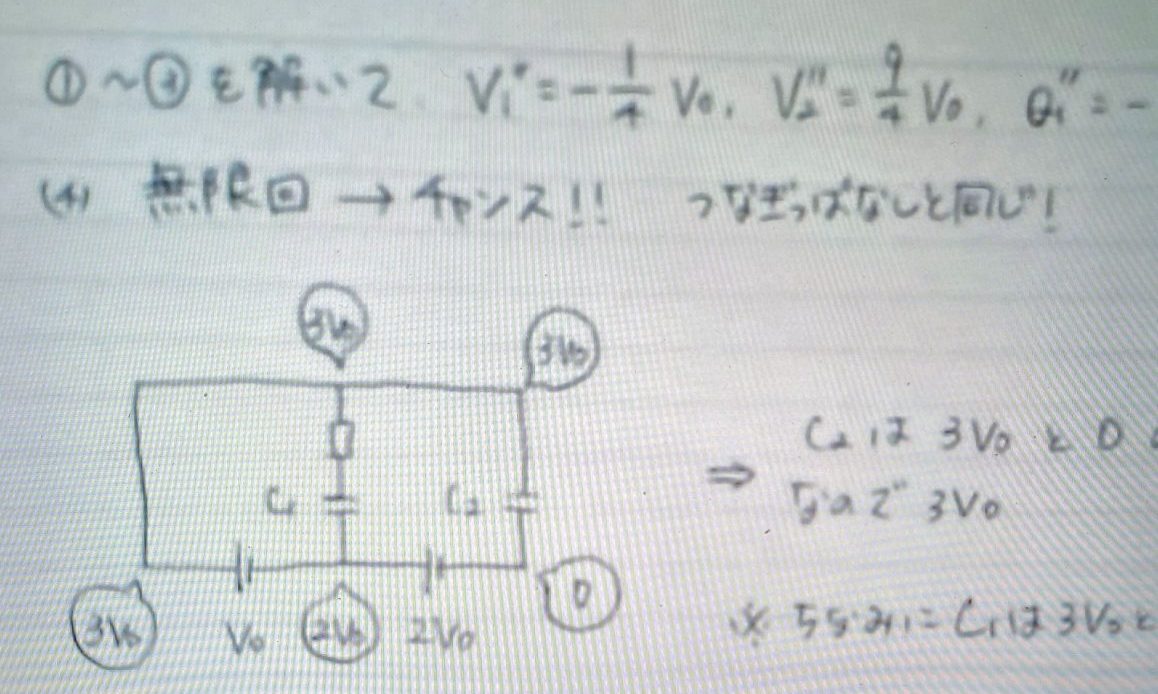 ①〜④を解いて V₁"=-1/4 V₀, V₂"=9/4 V₀, Q₁"=-
(4) 無限回→チャンス!! つなぎっぱなしと同じ!
3V₀
3V₀
C₂は 3V₀ と 0
⇒ なので 3V₀
C₁ C₂
3V₀ V₀ 2V₀ 2V₀ 0
※ ちなみに C₁は 3V₀と